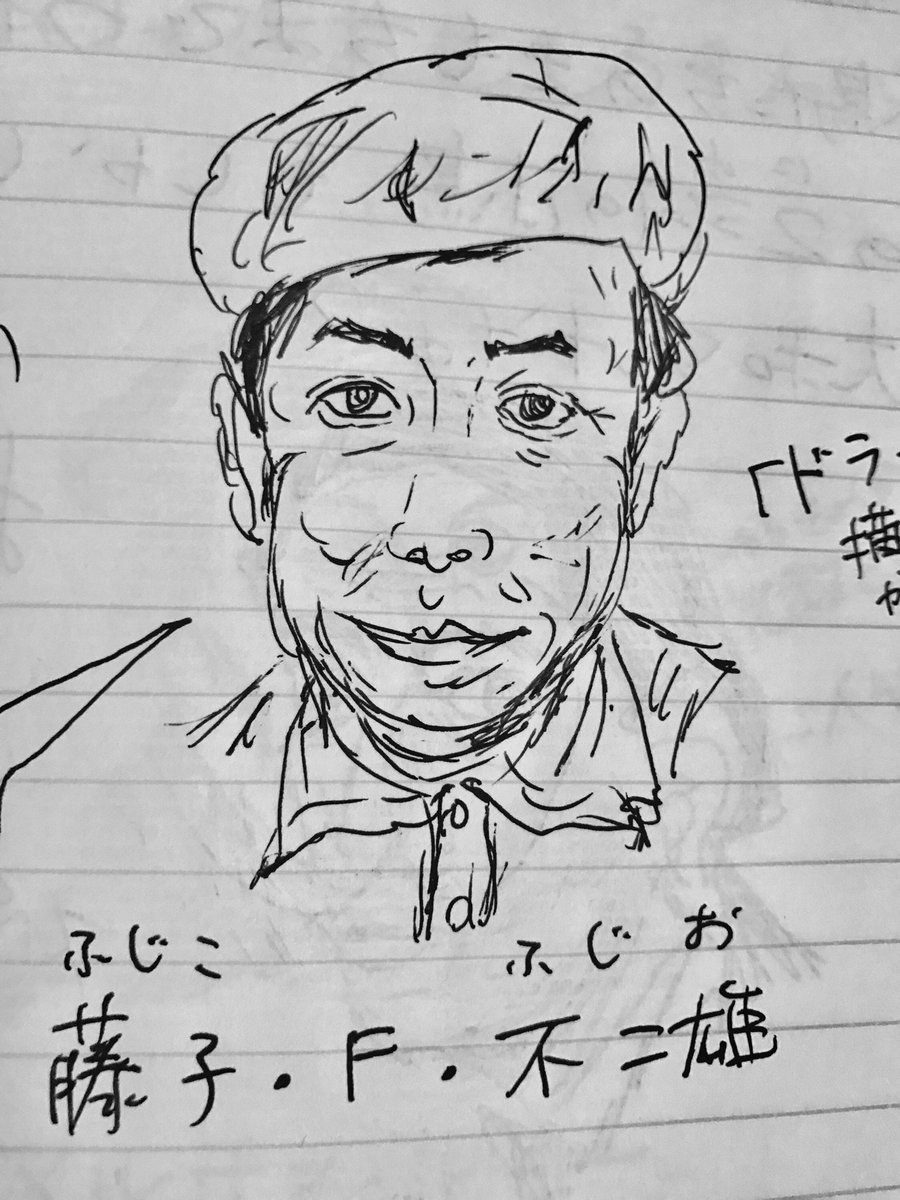 「ドラ
描
か
ふじこ ふじお
藤子・F・不二雄